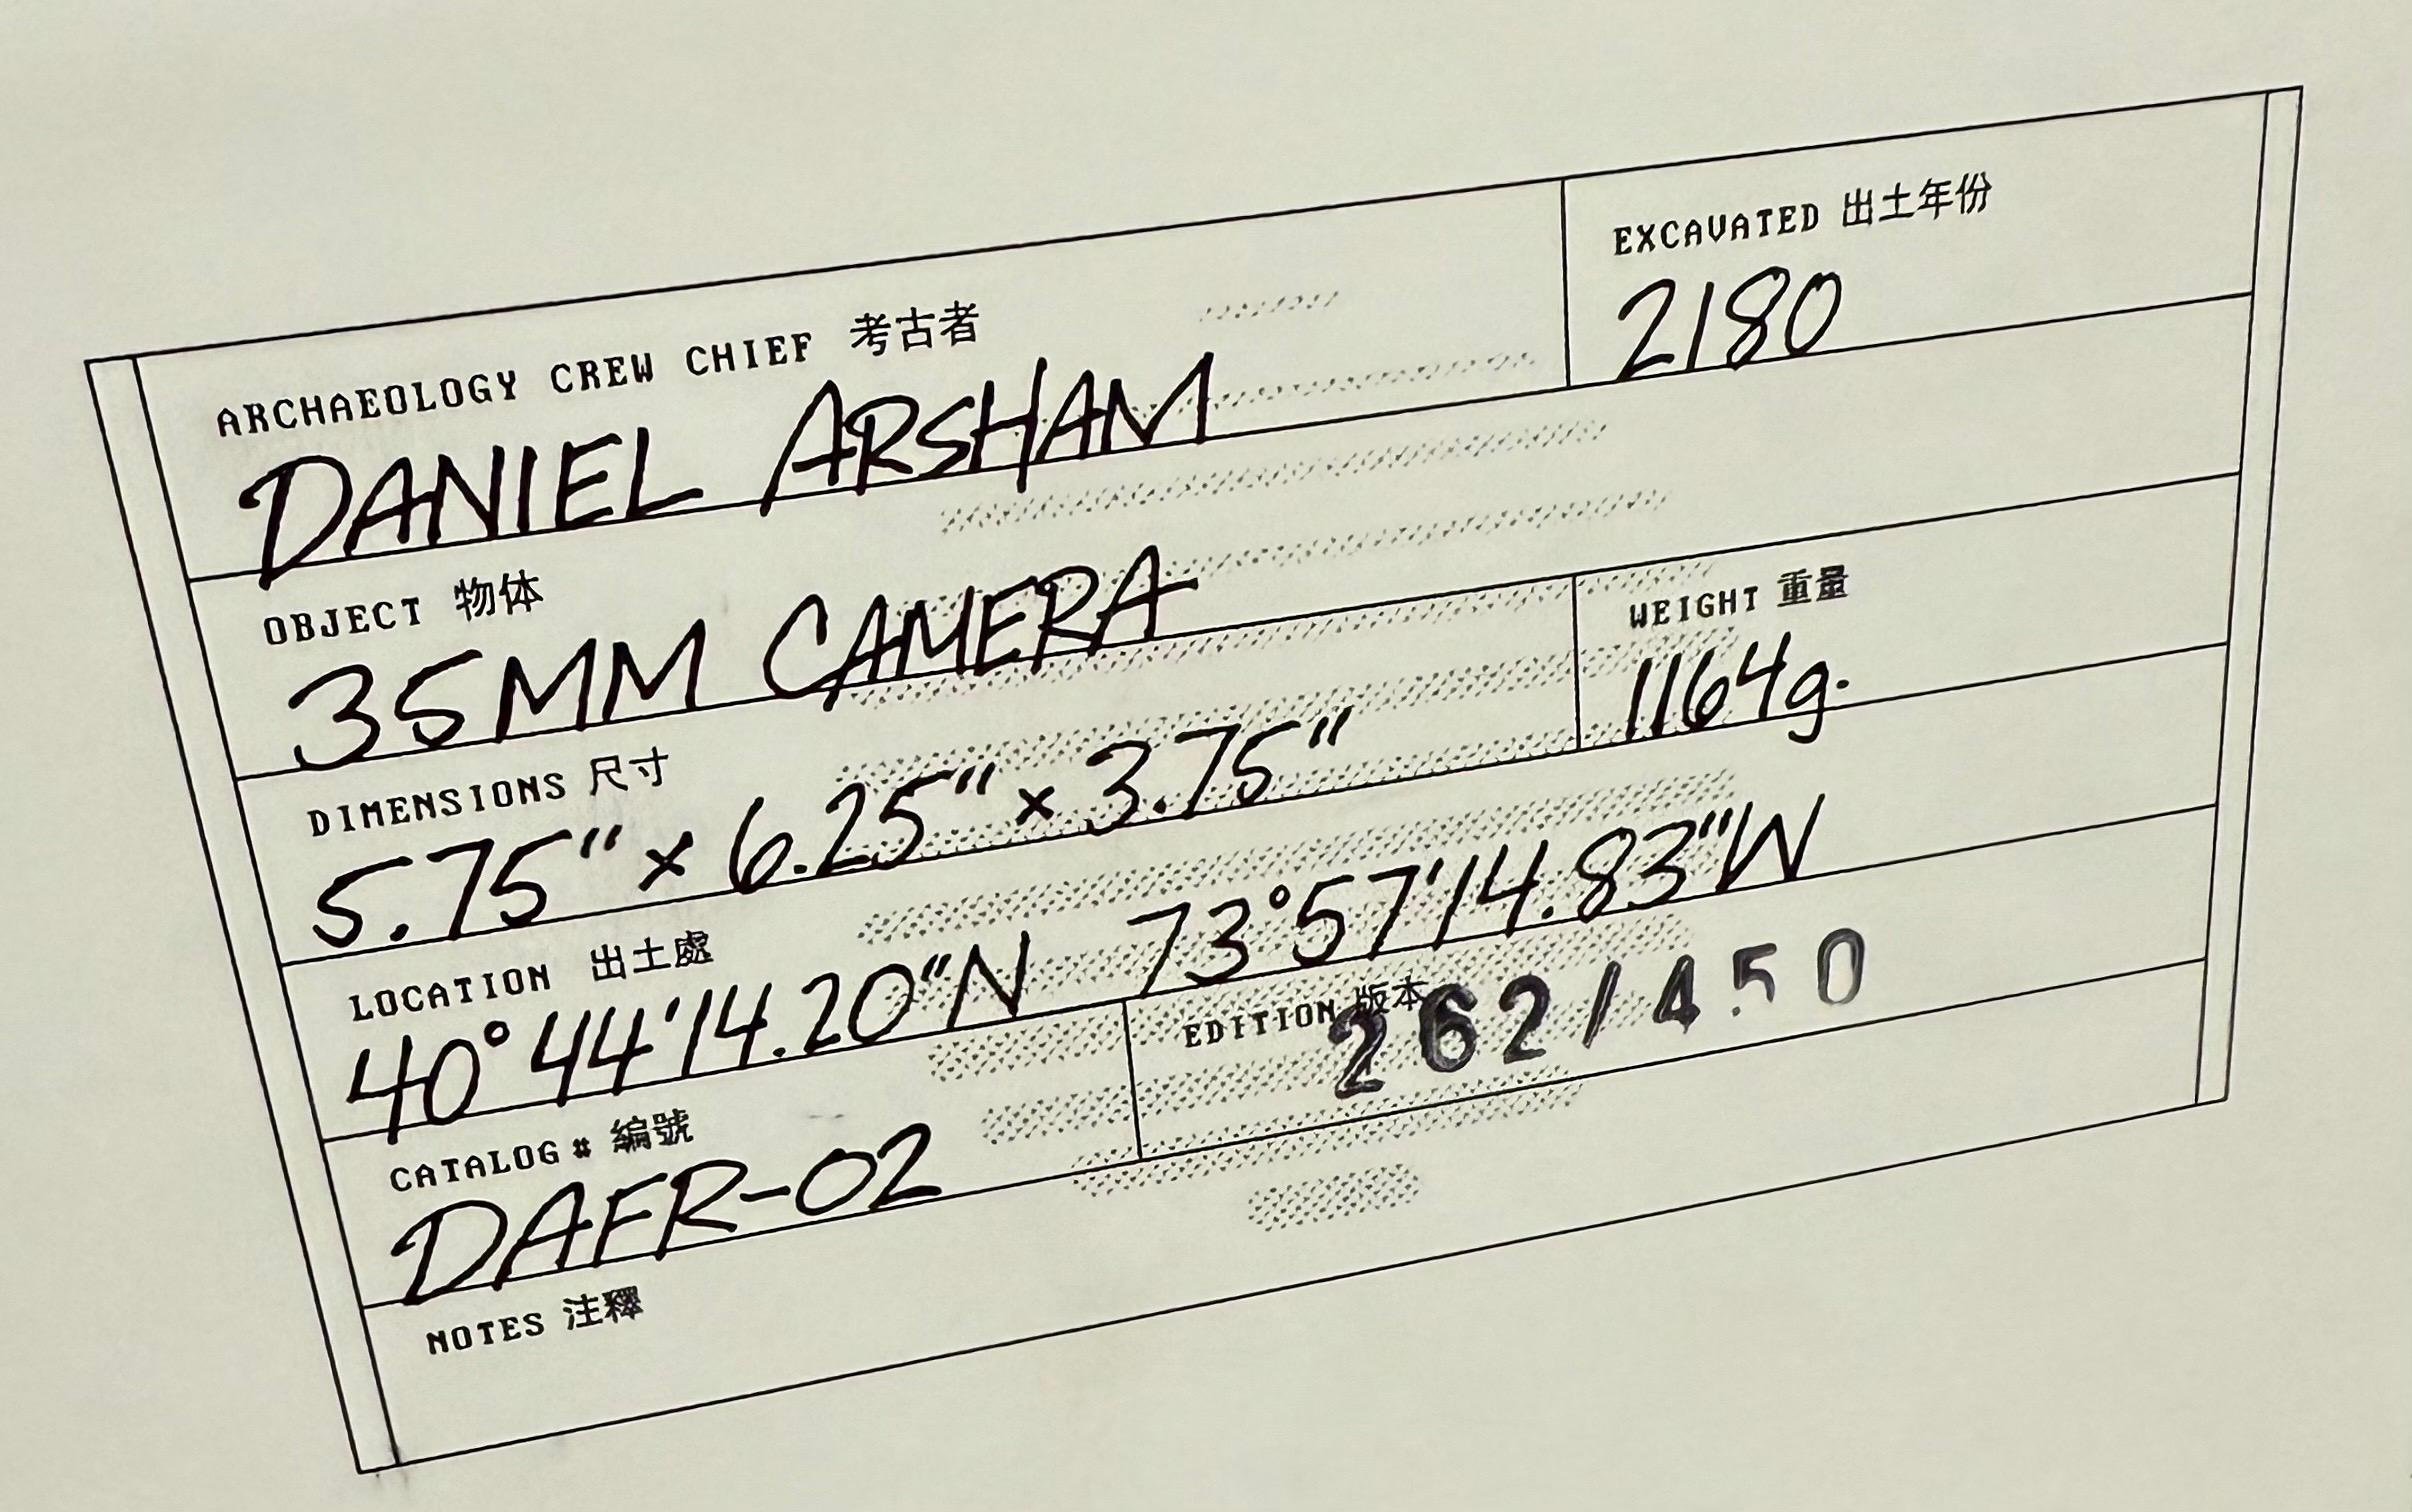 ARCHAEOLOGY CREW CHIEF 考古者
DANIEL ARSHAM
EXCAVATED 出土年份
2180
OBJECT 物体
35MM CAMERA
DIMENSIONS 尺寸
5.75" × 6.25" × 3.75"
WEIGHT 重量
1164g.
LOCATION 出土處
40°44'14.20"N 73°57'14.83"W
CATALOG # 編號
DAFR-02
EDITION 版本
262/450
NOTES 注釋